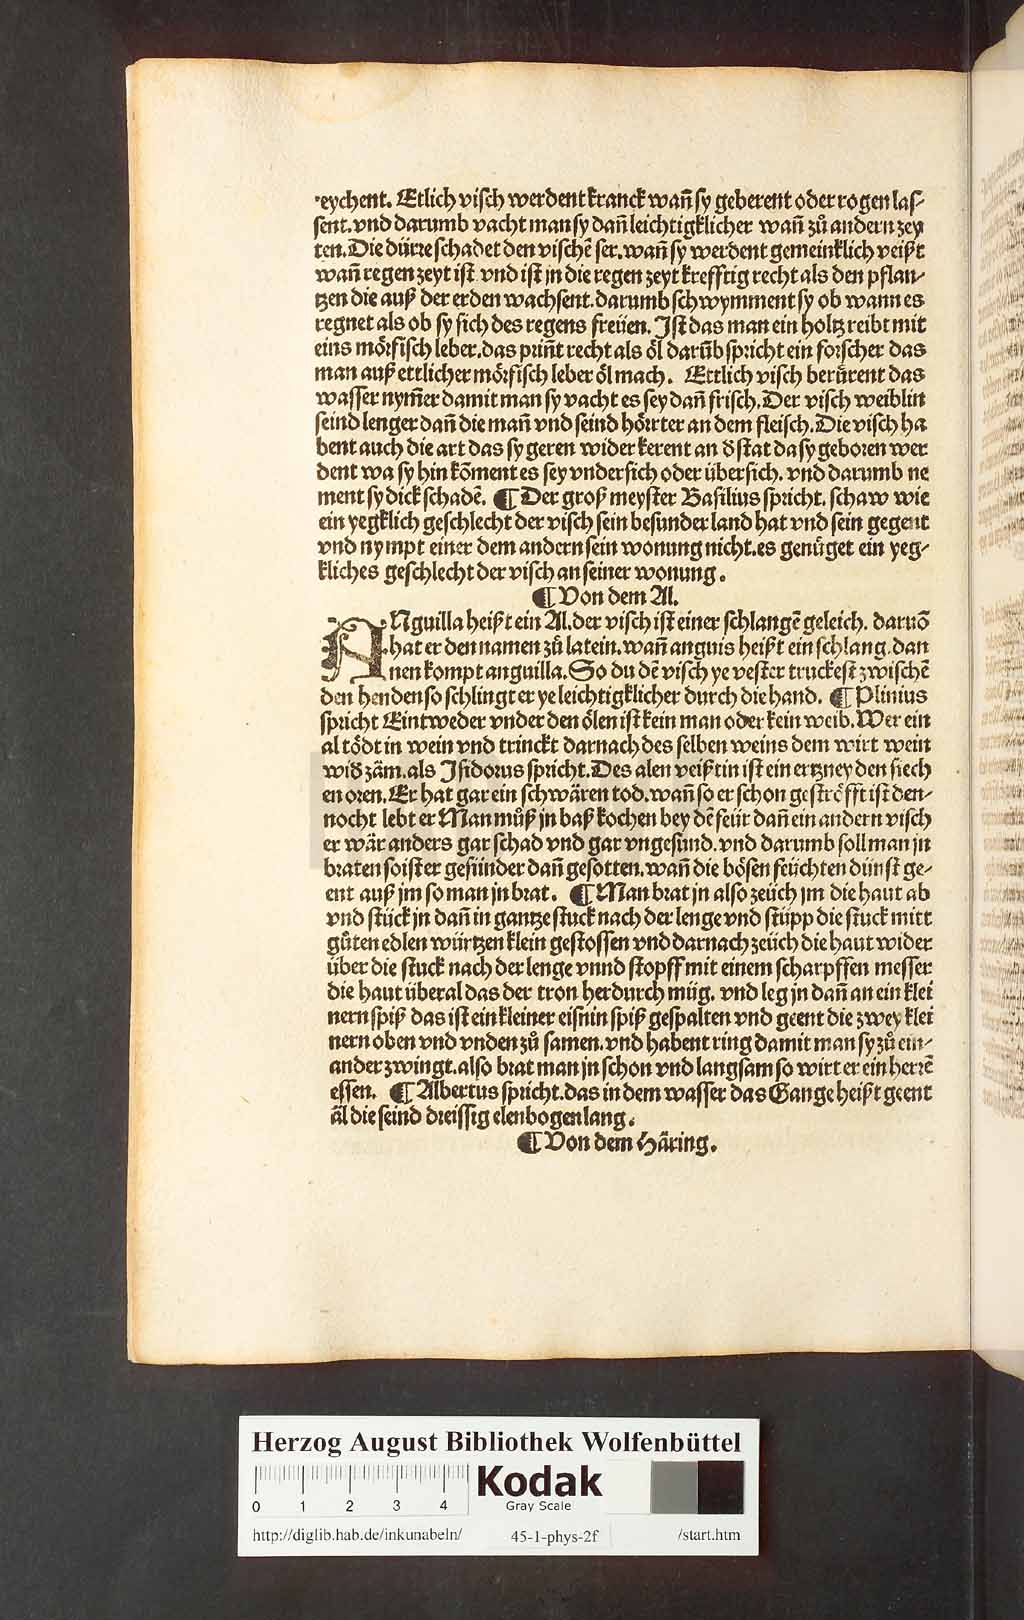 reychent. Etlich visch werdent kranck wañ sy geberent oder rogen las⸗
sent. vnd darumb vacht man sy dañ leichtigklicher wañ zů andern zey
ten. Die dürre schadet den vischē ser. wañ sy werdent gemeinklich veißt
wañ regen zeyt ist vnd ist jn die regen zeyt krefftig recht als den pflan⸗
tzen die auß der erden wachsent. darumb schwymment sy ob wann es
regnet als ob sy sich des regens freüen. Ist das man ein holtz reibt mit
eins mörfisch leber. das prińt recht als öl darūb spricht ein forscher das
man auß ettlicher mörfisch leber öl mach. Ettlich visch berůrent das
wasser nym̄er damit man sy vacht es sey dañ frisch. Der visch weiblin
seind lenger dañ die mañ vnd seind hörter an dem fleisch. Die visch ha
bent auch die art das sy geren wider kerent an d̄ stat da sy geboren wer
dent wa sy hin kōment es sey vndersich oder übersich. vnd darumb ne
ment sy dick schadē. ¶ Der groß meyster Basilius spricht. schaw wie
ein yegklich geschlecht der visch sein besunder land hat vnd sein gegent
vnd nympt einer dem andern sein wonung nicht. es genüget ein yeg⸗
kliches geschlecht der visch an seiner wonung.
¶ Von dem Al.
ANguilla heißt ein Al. der visch ist einer schlangē geleich. daruō
hat er den namen zů latein. wañ anguis heißt ein schlang. dan
nen kompt anguilla. So du dē visch ye vester truckest zwischē
den henden so schlingt er ye leichtigklicher durch die hand. ¶ Plinius
spricht Eintweder vnder den ölen ist kein man oder kein weib. Wer ein
al tödt in wein vnd trinckt darnach des selben weins dem wirt wein
wid̄ zäm. als Isidorus spricht. Des alen veißtin ist ein ertzney den siech
en oren. Er hat gar ein schwären tod. wañ so er schon gestrēfft ist den⸗
nocht lebt er Man můß jn baß kochen bey dē feür dañ ein andern visch
er wär anders gar schad vnd gar vngesund. vnd darumb soll man jn
braten so ist er gesünder dañ gesotten. wañ die bösen feüchten dünst ge⸗
ent auß jm so man jn brat. ¶ Man brat jn also zeüch jm die haut ab
vnd stück jn dañ in gantze stuck nach der lenge vnd stüpp die stuck mitt
gůten edlen würtzen klein gestossen vnd darnach zeüch die haut wider
über die stuck nach der lenge vnnd stopff mit einem scharpffen messer
die haut überal das der tron herdurch müg. vnd leg jn dañ an ein klei
nern spiß das ist ein kleiner eisnin spiß gespalten vnd geent die zwey klei
nern oben vnd vnden zů samen. vnd habent ring damit man sy zů ein⸗
ander zwingt. also brat man jn schon vnd langsam so wirt er ein herrē
essen. ¶ Albertus spricht. das in dem wasser das Gange heißt geent
äl die seind dreissig elenbogen lang.
¶ Von dem Häring.
Herzog August Bibliothek Wolfenbüttel
0 1 2 3 4
Kodak
Gray Scale
http://diglib.hab.de/inkunabeln/ 45-1-phys-2f /start.htm